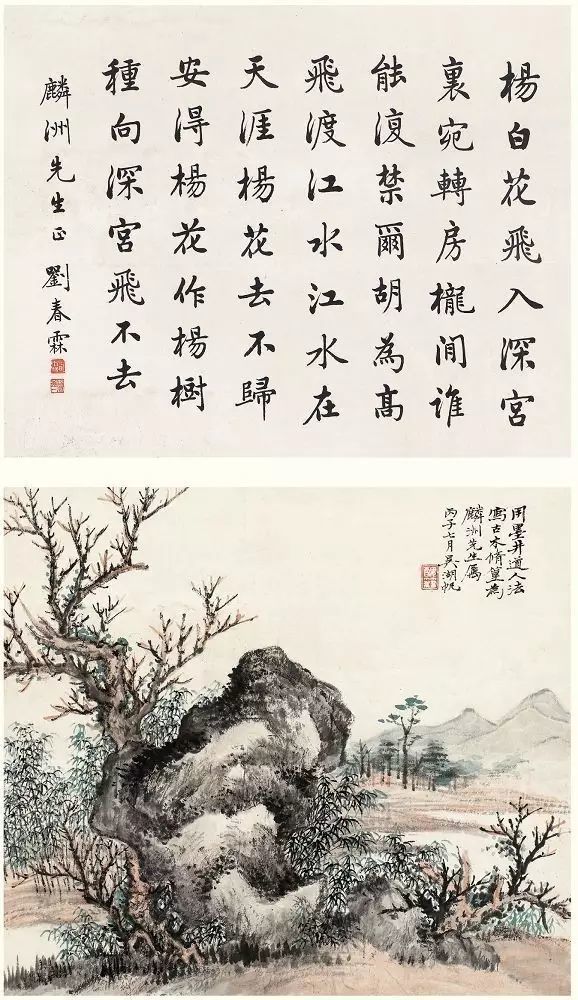 楊白花飛入深宮
裏宛轉房櫳間誰
能復禁爾胡為高
飛渡江水江水在
天涯楊花去不歸
安得楊花作楊樹
種向深宮飛不去
麟洲先生正 劉春霖
用墨井道人法
寫古木脩篁為
麟洲先生屬
丙子七月吳湖帆